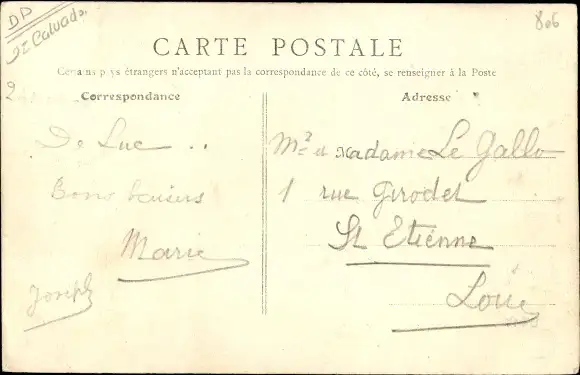 DD
Dt Calvados
806
CARTE POSTALE
Certains pays étrangers n'acceptant pas la correspondance de ce côté, se renseigner à la Poste
Correspondance
De Luc ..
Bons baisers
Marie
Joseph
Adresse
Mr et Madame Le Gallo
1 rue Girodet
St Etienne
Loire